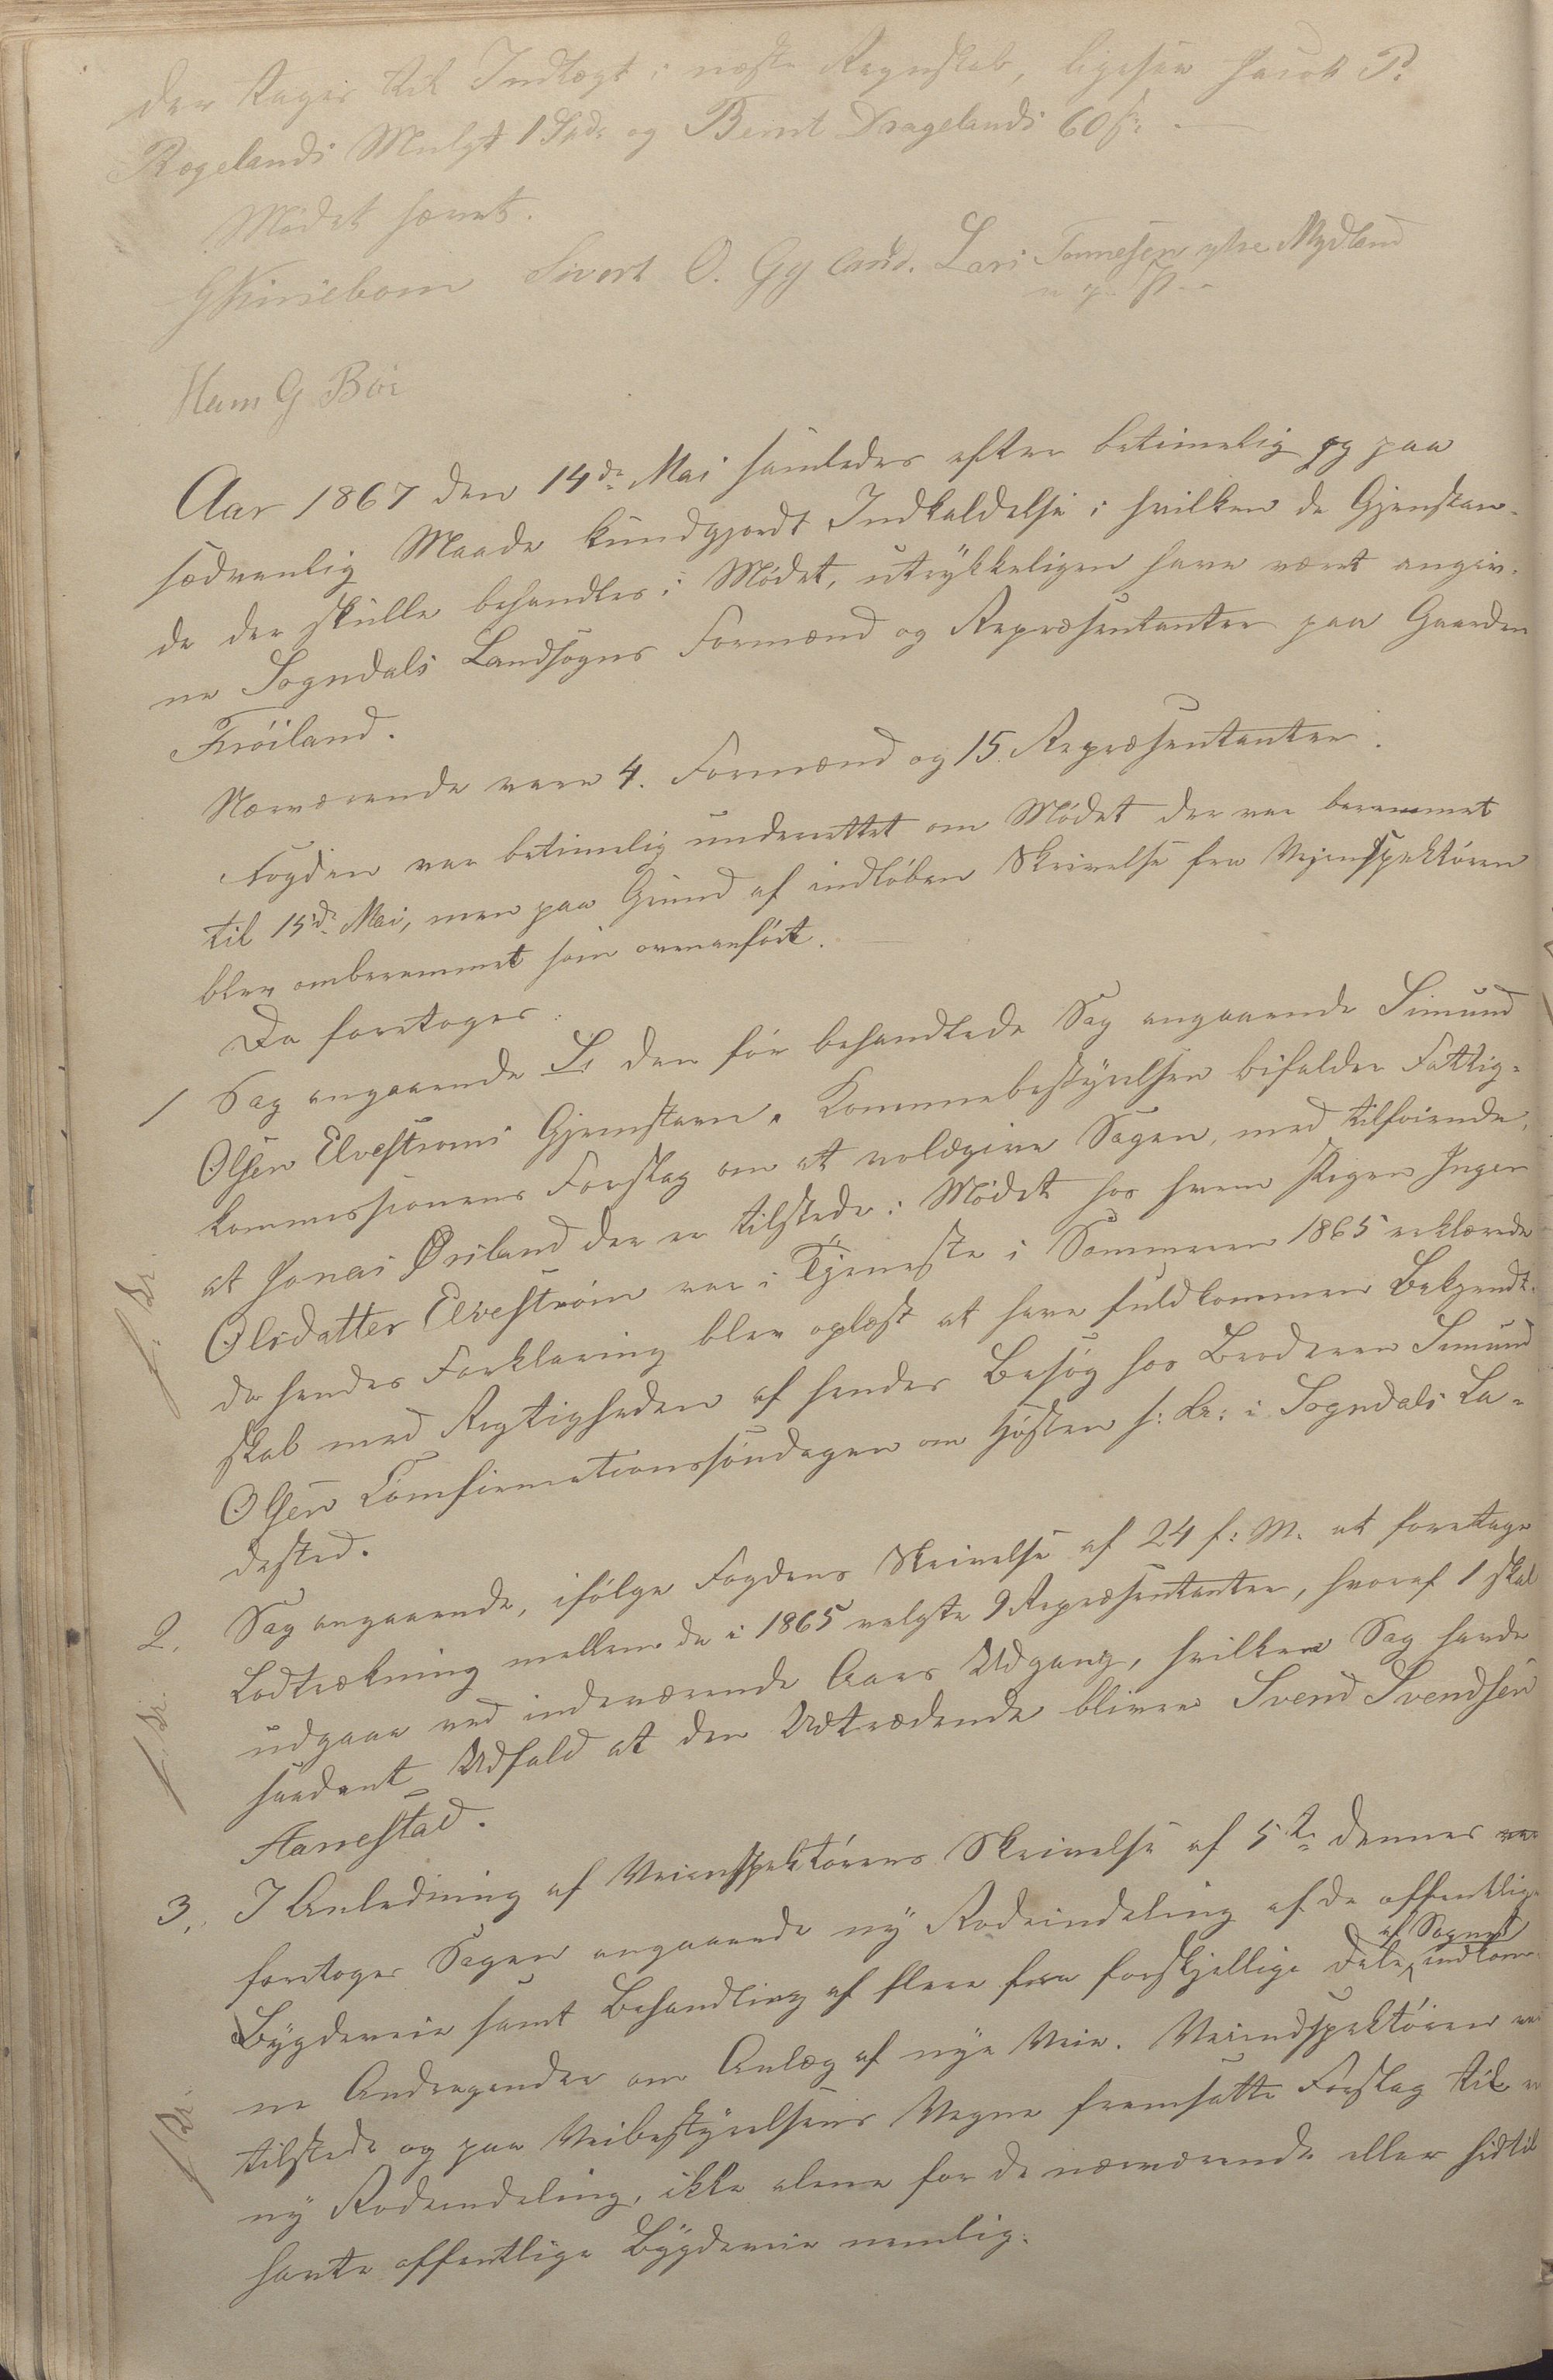 der tages til Indtægt i næste Regnskab, ligesom Jacob P.
Rægelands Mulgt 1 Spd: og Bernt Dragelands 60 s:
Mødet hævet.
Sivert O. Gyland. Lars Tønnesen ytre Mydland
m. p. P.
Ham G Böe
Aar 1867 den 14de Mai samledes efter betimelig og paa
sædvanlig Maade kundgjordt Indkaldelse i hvilken de Gjenstan-
de der skulle behandles i Mödet, utrykkeligen have været angiv-
ne Sogndals Landsogns Formænd og Repræsentanter paa Gaarden
Fröiland.
Nærværende vare 4. Formænd og 15 Repræsentanter.
Fogden var betimelig underrettet om Mödet der var berammet
til 15de Mai, men paa Grund af indlöben Skrivelse fra Vejinspektören
blev omberammet som ovenanfört.
Da foretoges:
1 Sag angaaende S. den för behandlede Sag angaaende Simund
Olsen Elvestrøms Gjenstavn. Kommunebestyrelsen bifalder Fattig-
kommissionens Forslag om at voldgive Sagen, med tilföiende,
at Jonas Øriland der er tilstede i Mödet hos hvem Pigen Inger
Olsdatter Elveström var i Tjeneste i Sommeren 1865 erklærede
da hendes Forklaring blev oplæst at have fuldkommen Bekjendt-
skab med Rigtigheden af hendes Besög hos Broderen Simund
Olsen Comfirmationssöndagen om Hösten s: Ar: i Sogndals La-
dested.
f. Dr.
2. Sag angaaende, ifölge Fogdens Skrivelse af 24 f: M. at foretage
Lodtrækning mellem de i 1865 valgte 9 Repræsentanter, hvoraf 1 skal
udgaae ved indeværende Aars Udgang, hvilken Sag havde
saadant Udfald at den Udtrædende bliver Svend Svendsen
Aarrestad.
f. Dr.
3. I Anledning af Veiinspektörens Skrivelse af 5te dennes
foretoges Sagen angaaende ny Rodeindeling af de offentlige
Bygdeveie samt Behandling af flere fra forskjellige Dele af Sognet indkom-
ne Andragender om Anlæg af nye Veie. Veiindspektören var
tilstede og paa Veibestyrelsens Vegne fremsatte Forslag til en
ny Rodeindeling, ikke alene for de nærværende eller hidtil
havte offentlige Bygdeveie nemlig:
f. Dr.